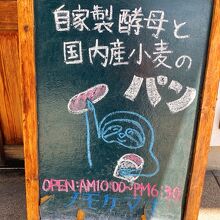 自家製酵母と
国内産小麦の
パン
OPEN:AM10:00~PM6:30
ナモケモノ